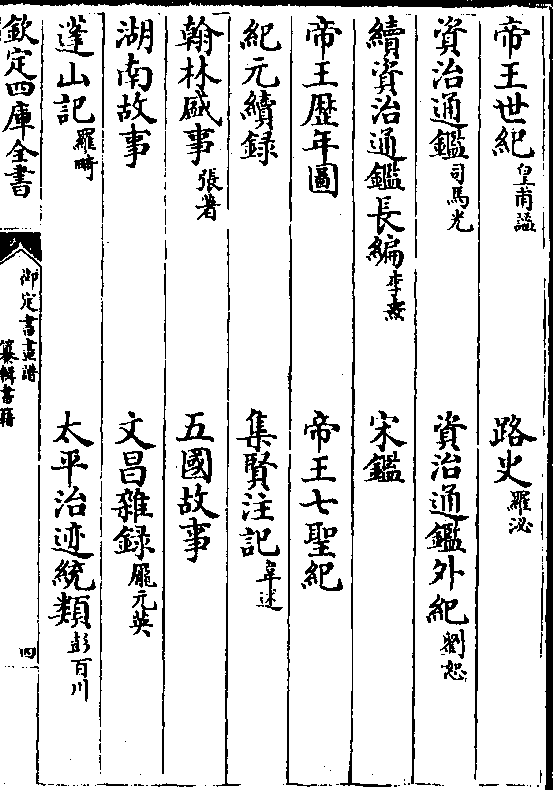 帝王世紀皇甫謐　路史羅泌
資治通鑑司馬光　資治通鑑外紀劉恕
續資治通鑑長編李燾　宋鑑
帝王歷年圖　帝王七聖紀
紀元續録　集賢注記韋述
翰林盛事張著　五國故事
湖南故事　文昌雜録龎元英
蓬山記羅畸　太平治迹統類彭百川
欽定四庫全書　御定書畫譜　纂輯書籍　四